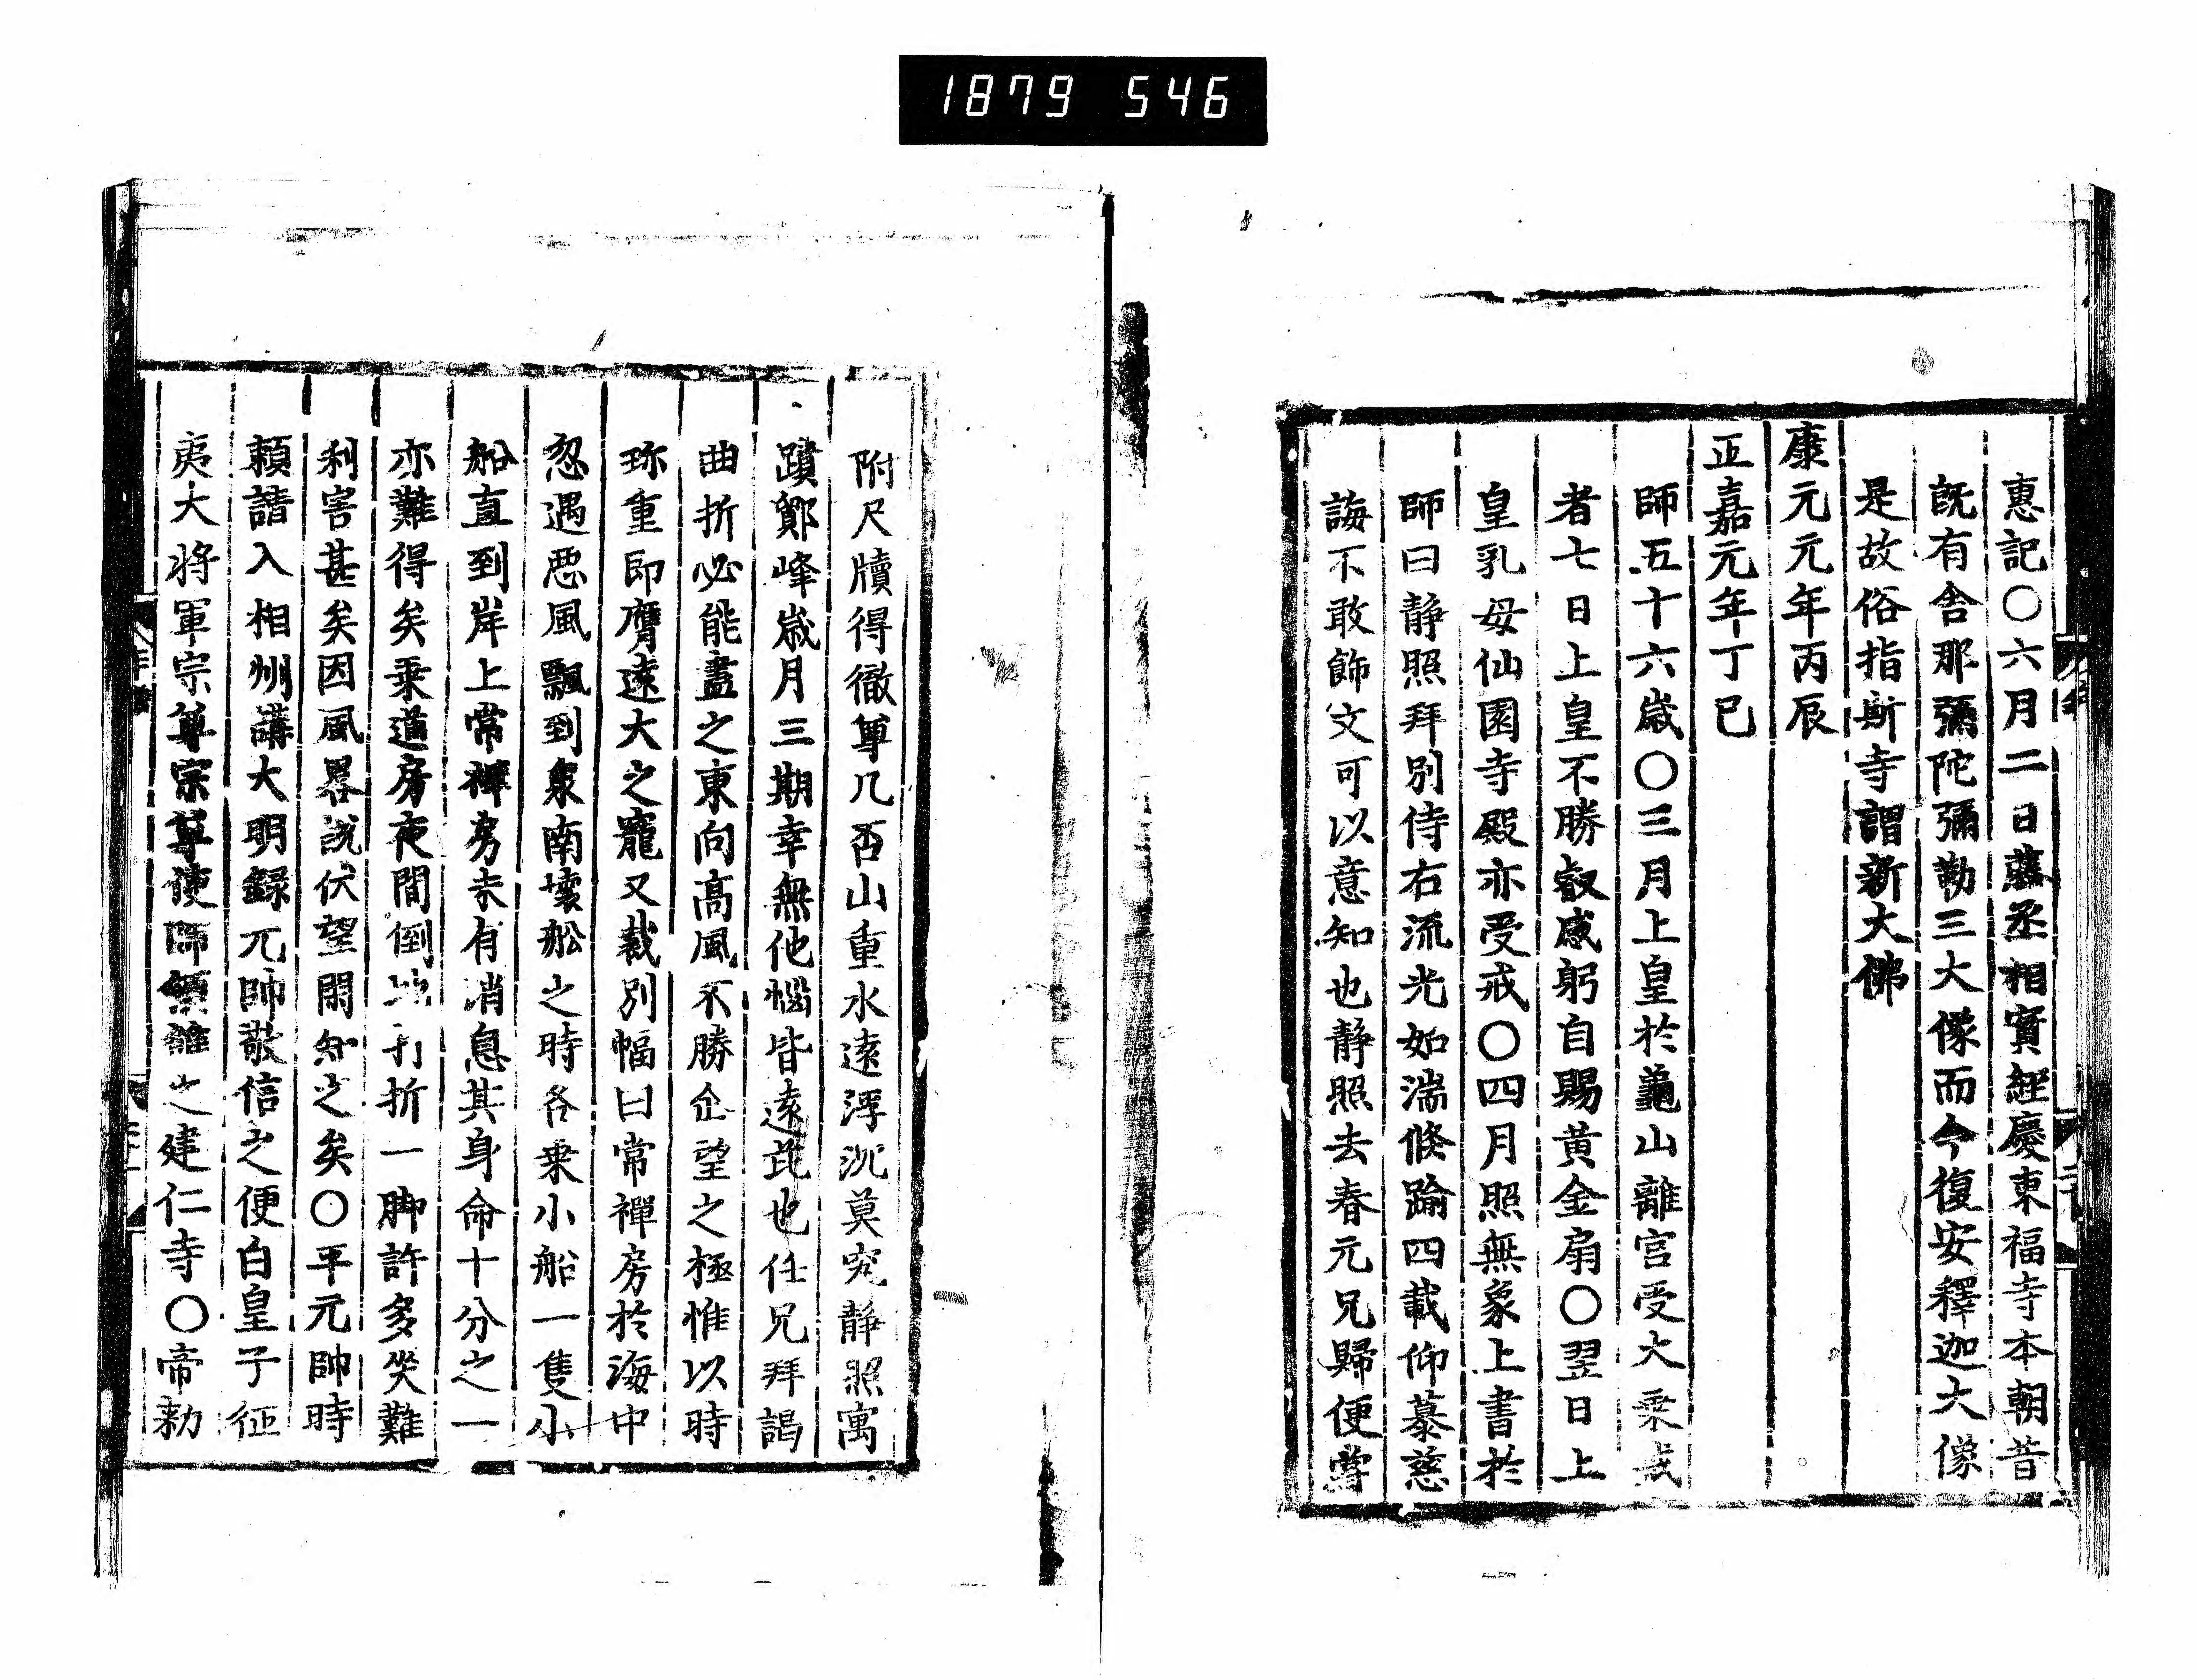 1879 546
惠記〇六月二日藤丞相實經慶東福寺本朝昔
既有舎那彌陀彌勒三大像而今復安釋迦大像
是故俗指斯寺謂新大佛
康元元年丙辰
正嘉元年丁巳
師五十六歳〇三月上皇於龜山離宮受大乘戒
者七日上皇不勝叡感躬自賜黄金扇〇翌日上
皇乳母仙園寺殿亦受戒〇四月照無象上書於
師曰静照拜別侍右流光如湍倏踰四載仰慕慈
誨不敢飾文可以意知也静照去春元兄歸便嘗
附尺牘得徹尊几否山重水遠浮沉莫究静照寓
蹟鄮峰歳月三期幸無他惱皆遠庇也任兄拜謁
曲折必能盡之東向高風不勝企望之極惟以時
珎重即膺遠大之寵又裁別幅曰常禪房於海中
忽遇悪風飄到泉南壊舩之時各乗小船一隻小
船直到岸上常禪房未有消息其身命十分之一
亦難得矣乗道房夜間倒地打折一脚許多災難
利害甚矣因風畧説伏望聞知之矣〇平元帥時
頼請入相州講大明録元帥敬信之便白皇子征
夷大将軍宗尊宗尊使師領雒之建仁寺〇帝勅